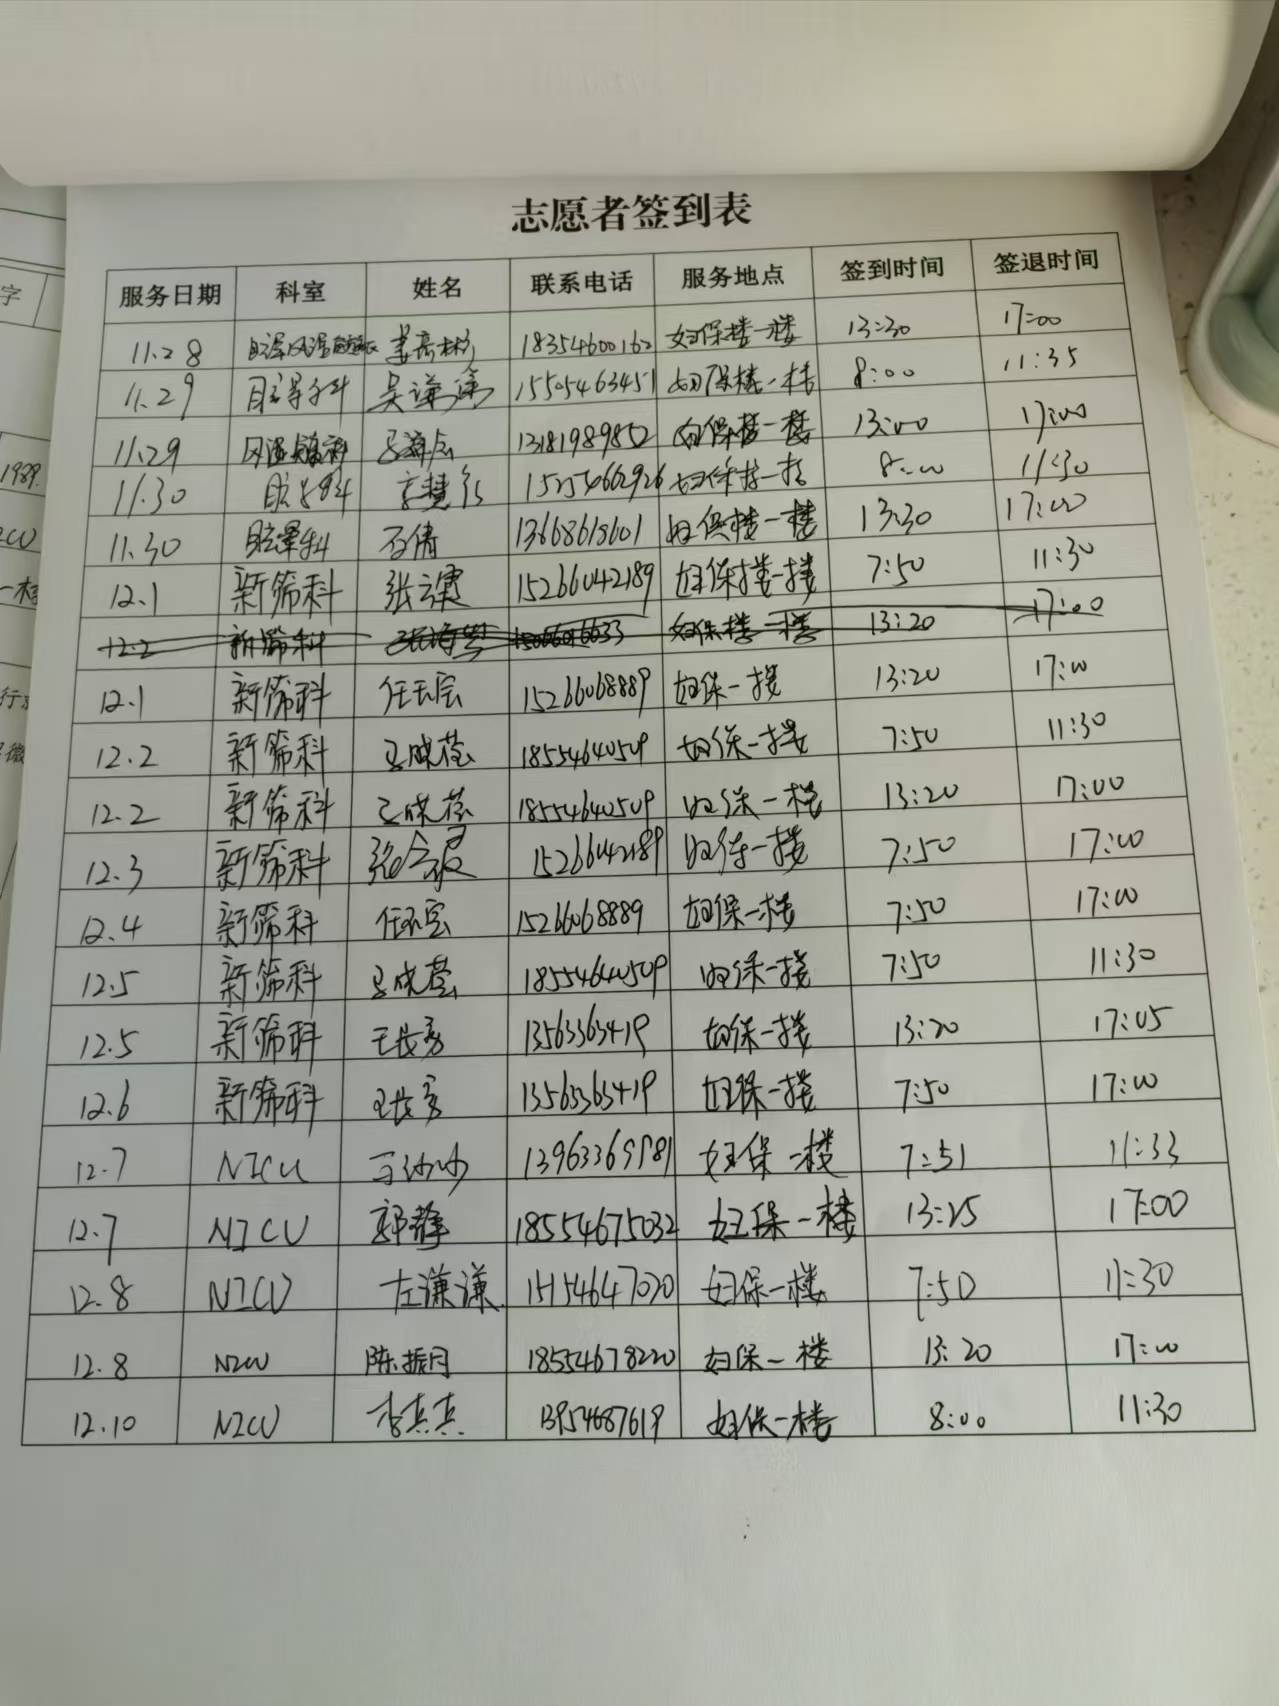 志愿者签到表
服务日期 科室 姓名 联系电话 服务地点 签到时间 签退时间
11.28 18354600162 妇保楼一楼 13:30 17:00
11.29 15505463451 妇保楼一楼 8:00 11:35
11.29 13181989852 妇保楼一楼 13:00 17:00
11.30 15254662926 8:00 11:30
11.30 石倩 13668618601 妇保楼一楼 13:30 17:00
12.1 新筛科 张云霞 15266042189 妇保楼一楼 7:50 11:30
12.2 新筛科 妇保楼一楼 13:20 17:00
12.1 新筛科 任玉宝 15266068889 妇保一楼 13:20 17:00
12.2 新筛科 18554640509 妇保一楼 7:50 11:30
12.2 新筛科 18554640509 妇保一楼 13:20 17:00
12.3 新筛科 15266042189 妇保一楼 7:50 17:00
12.4 新筛科 15266068889 妇保一楼 7:50 17:00
12.5 新筛科 18554640509 妇保一楼 7:50 11:30
12.5 新筛科 13563363419 妇保一楼 13:20 17:05
12.6 新筛科 13563363419 妇保一楼 7:50 17:00
12.7 NICU 13963369981 妇保一楼 7:51 11:33
12.7 NICU 郭静 18554675032 妇保一楼 13:25 17:00
12.8 NICU 左谦谦 15154647020 妇保一楼 7:50 11:30
12.8 NICU 陈振月 18554678220 妇保一楼 13:20 17:00
12.10 NICU 李真真 13954687619 妇保一楼 8:00 11:30